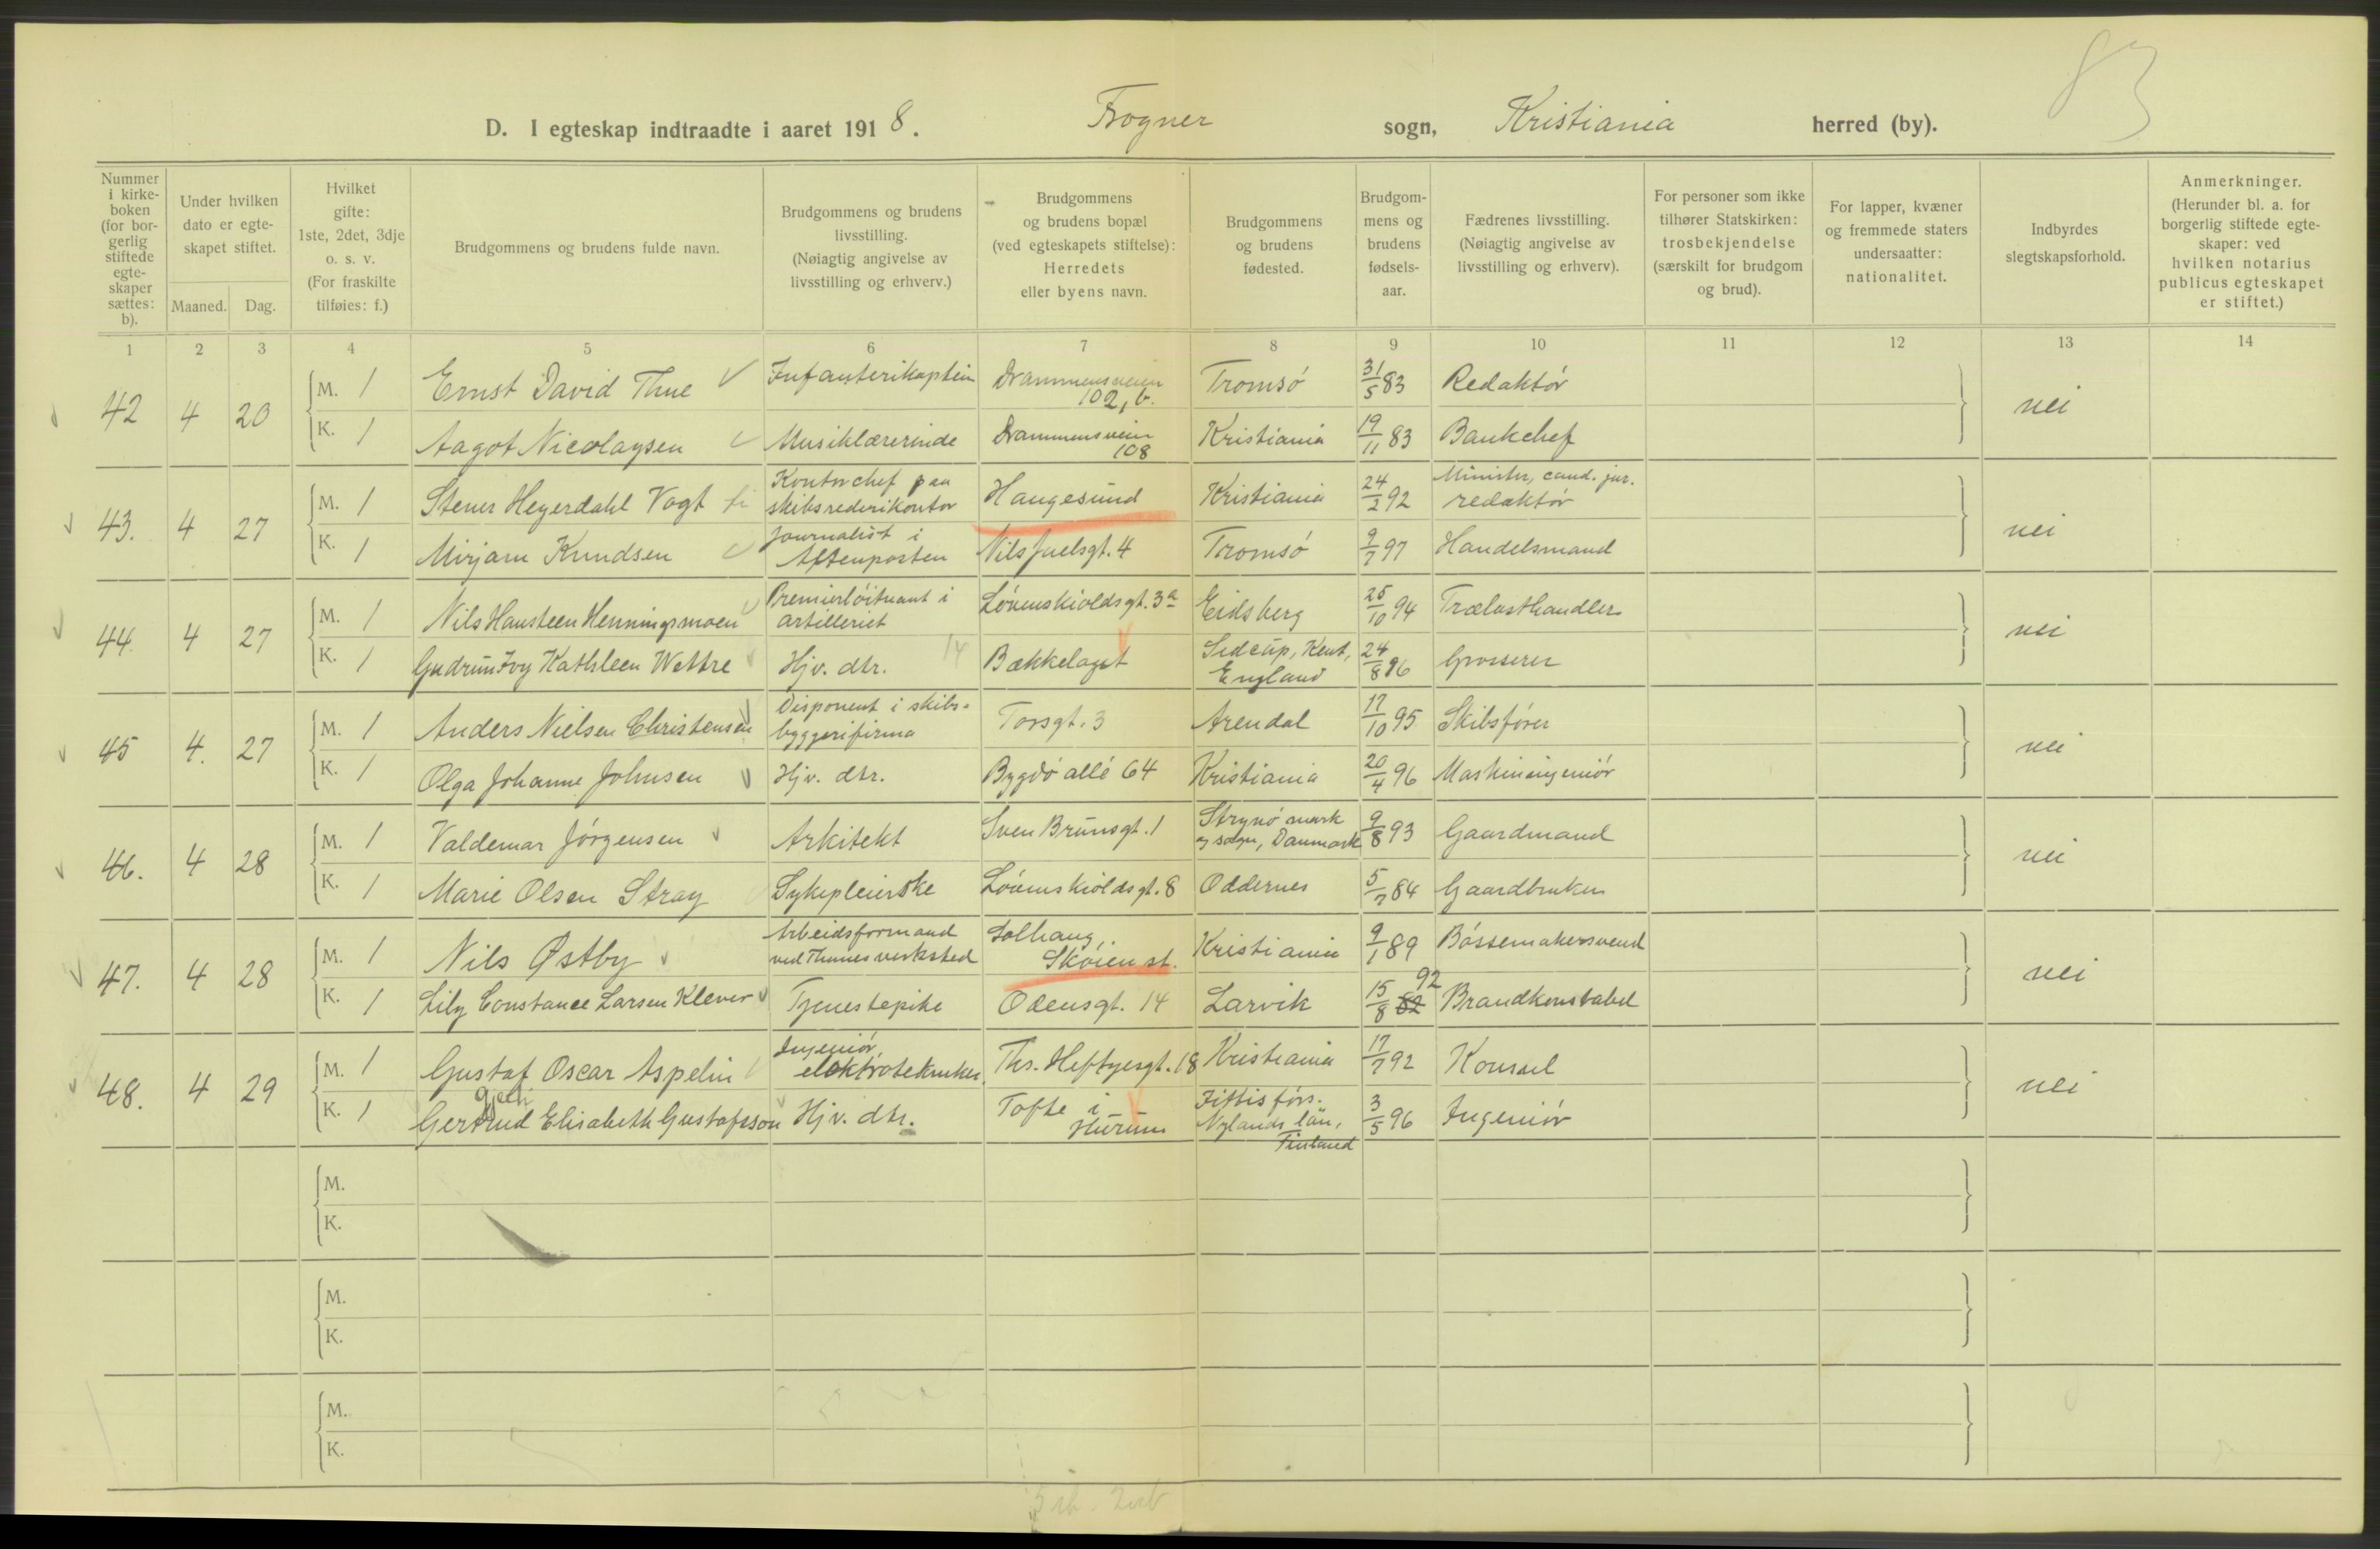 83
D. I egteskap indtraadte i aaret 1918. Frogner sogn, Kristiania herred (by).
Nummer i kirke-boken (for bor-gerlig stiftede egte-skaper sættes: b).
Under hvilken dato er egte-skapet stiftet.
Maaned. Dag.
Hvilket gifte: 1ste, 2det, 3dje o. s. v. (For fraskilte tilføies: f.)
Brudgommens og brudens fulde navn.
Brudgommens og brudens livsstilling. (Nøiagtig angivelse av livsstilling og erhverv.)
Brudgommens og brudens bopæl (ved egteskapets stiftelse): Herredets eller byens navn.
Brudgommens og brudens fødested.
Brudgom-mens og brudens fødsels-aar.
Fædrenes livsstilling. (Nøiagtig angivelse av livsstilling og erhverv).
For personer som ikke tilhører Statskirken: trosbekjendelse (særskilt for brudgom og brud).
For lapper, kvæner og fremmede staters undersaatter: nationalitet.
Indbyrdes slegtskapsforhold.
Anmerkninger. (Herunder bl. a. for borgerlig stiftede egte-skaper: ved hvilken notarius publicus egteskapet er stiftet.)
1 2 3 4 5 6 7 8 9 10 11 12 13 14
42 4 20 M. 1 Ernst David Thue Infanterikaptein Drammensveien 102, b. Tromsø 31/5 83 Redaktør nei
K. 1 Aagot Nicolaysen Musiklærerinde Drammensveien 108 Kristiania 19/11 83 Bankchef
43. 4 27 M. 1 Stener Heyerdahl Vogt Kontorchef paa skibsrederikontor Haugesund Kristiania 24/2 92 Minister, cand. jur. redaktør nei
K. 1 Mirjam Knudsen Journalist i Aftenposten Nils Juelsgt. 4 Tromsø 9/7 97 Handelsmand
44 4 27 M. 1 Nils Hansteen Henningsmoen Premierløitnant i artilleriet Løvenskioldsgt. 3a Eidsberg 25/10 94 Trælasthandler nei
K. 1 Gudrun Ivy Kathleen Wettre Hjv. dtr. 14 Bækkelaget Sidcup, Kent, England 24/8 96 Grosserer
45 4. 27 M. 1 Anders Nielsen Christensen Disponent i skibs-byggerifirma Torsgt. 3 Arendal 17/10 95 Skibsfører nei
K. 1 Olga Johanne Johnsen Hjv. dtr. Bygdø allé 64 Kristiania 20/4 96 Maskiningeniør
46. 4 28 M. 1 Valdemar Jørgensen Arkitekt Sven Brunsgt. 1 Strynø mark og sogn, Danmark 9/8 93 Gaardmand nei
K. 1 Marie Olsen Stray Sykepleierske Løvenskioldsgt. 8 Oddernes 5/7 84 Gaardbruker
47. 4 28 M. 1 Nils Østby Arbeidsformand ved Thunes verksted Solhaug, Skøien st. Kristiania 9/1 89 Bøssemakersvend nei
K. 1 Lily Constance Larsen Klever Tjenestepike Odensgt. 14 Larvik 15/8 82 92 Brandkonstabel
48. 4 29 M. 1 Gustaf Oscar Aspelin Ingeniør, elektrotekniker Ths. Heftyesgt. 18 Kristiania 17/7 92 Konsul nei
K. 1 Gertrud Elisabeth Gustafsson Hjv. dtr. Tofte i Hurum Nylands län, Finland 3/5 96 Ingeniør
M.
K.
M.
K.
M.
K.